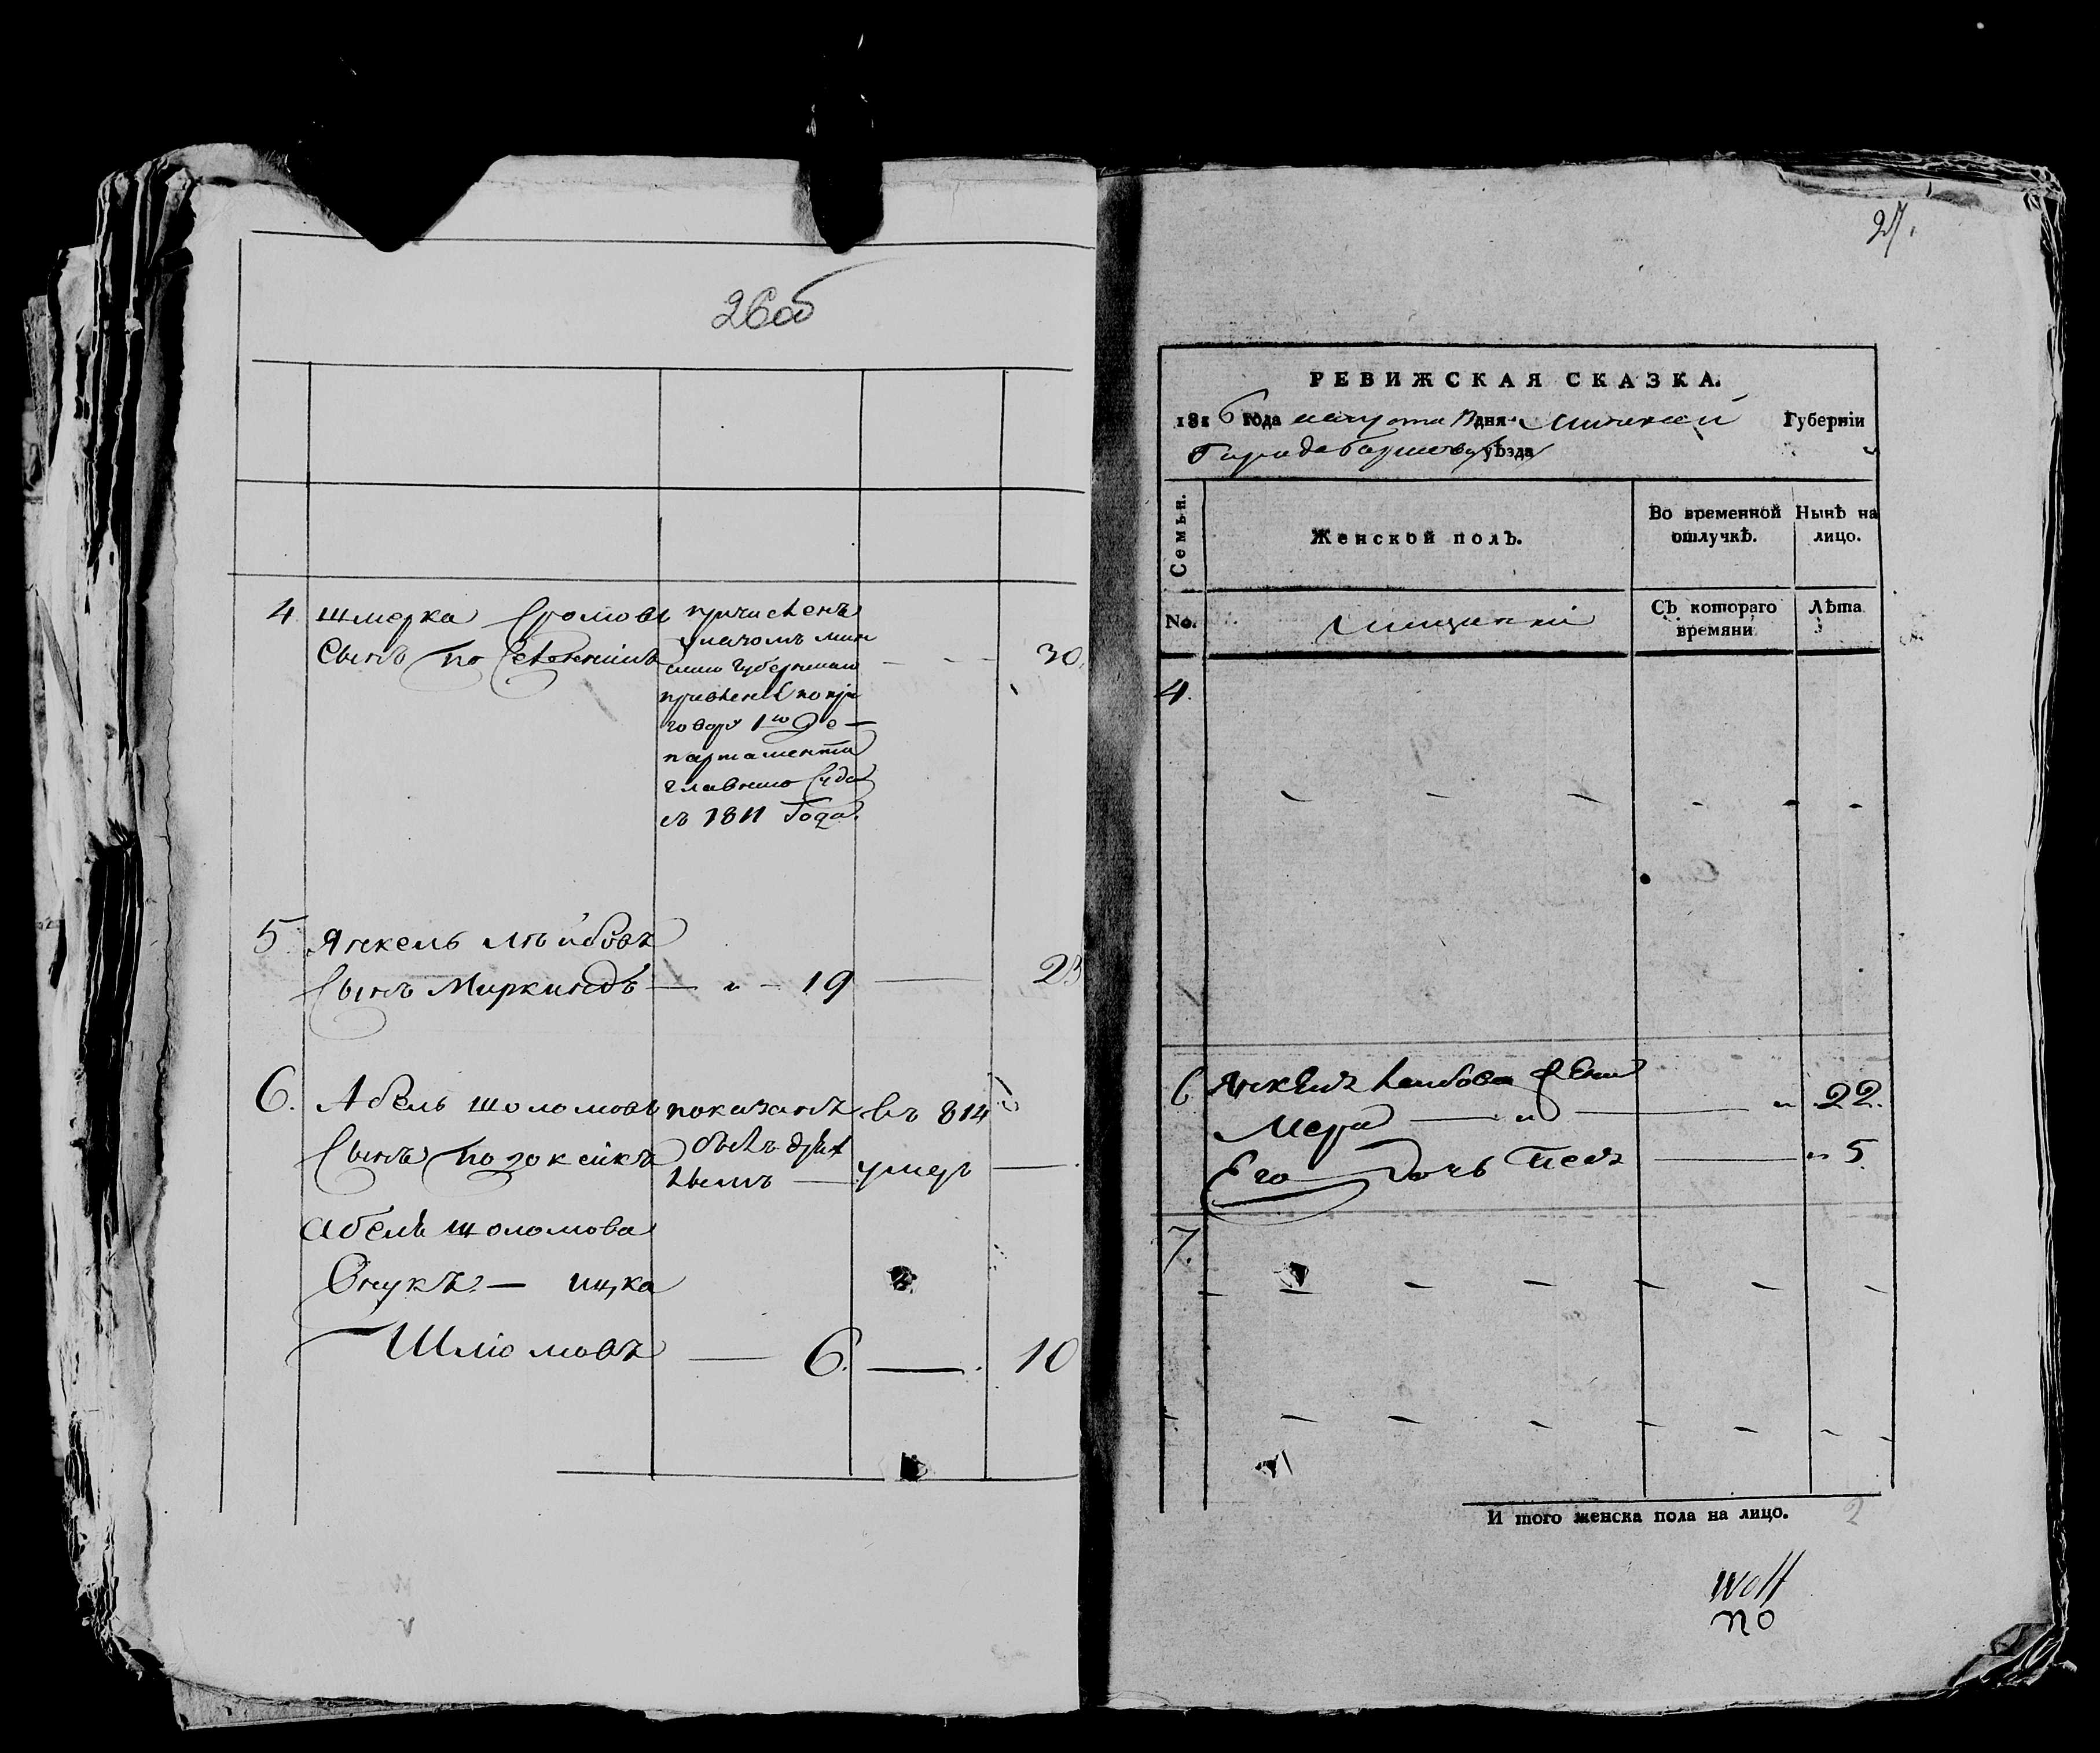 26об
4 Шмерка Сромовъ причисленъ
указомъ мин
Сынъ по скаго губернскаго — — — 30
правленія по при
говору 1го Де-
партамента
главнаго Суда
съ 1811 Года.
5 Янкель Лейбовъ
Сынъ Миркиндъ — „ — 19 — 23
6. Абель Шоломовъ показанъ въ 814
Сынъ былъ умеръ —
Абель Шоломова
Внукъ — Ицка
Шлiомовъ — 6. — 10
27.
РЕВИЖСКАЯ СКАЗКА.
1816 года августа дня Минской Губерніи
Города уѣзда
Семьи.
Женской полъ.
Во временной отлучкѣ.
Нынѣ на лицо.
No.
мещанки
Съ котораго времяни
Лѣта
4.
6 Янкеля Лейбова жена
Мера — „ — „ 22.
Его дочь — „ 5
7.
И того женска пола на лицо. 2
Wolf
no